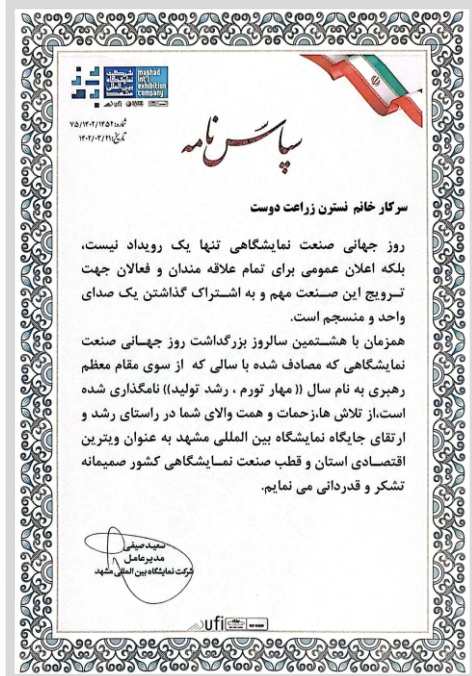 شرکت
نمایشگاه
بین المللی
مشهد
mashad
int'l
exhibition
company
ufi
شماره: ۷۵/۱۴۰۲/۱۴۵۲
تاریخ: ۱۴۰۲/۰۳/۲۱
سپاس نامه
سرکار خانم نسترن زراعت دوست
روز جهانی صنعت نمایشگاهی تنها یک رویداد نیست،
بلکه اعلان عمومی برای تمام علاقه مندان و فعالان جهت
ترویج این صنعت مهم و به اشتراک گذاشتن یک صدای
واحد و منسجم است.
همزمان با هشتمین سالروز بزرگداشت روز جهانی صنعت
نمایشگاهی که مصادف شده با سالی که از سوی مقام معظم
رهبری به نام سال (( مهار تورم ، رشد تولید)) نامگذاری شده
است،از تلاش ها،زحمات و همت والای شما در راستای رشد و
ارتقای جایگاه نمایشگاه بین المللی مشهد به عنوان ویترین
اقتصادی استان و قطب صنعت نمایشگاهی کشور صمیمانه
تشکر و قدردانی می نمایم.
سعید صیفی
مدیرعامل
شرکت نمایشگاه بین المللی مشهد
ufi